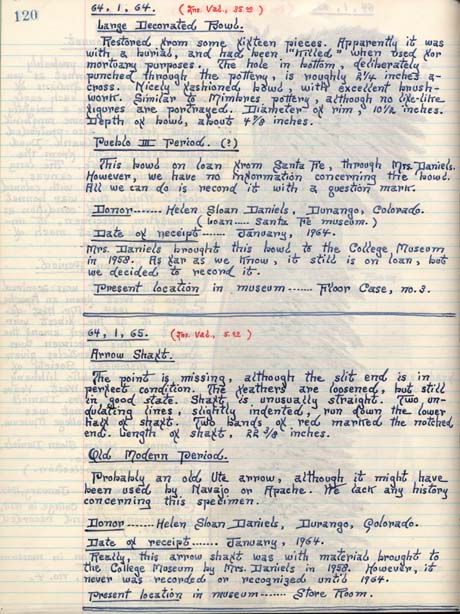 120
64, 1, 64. (Ins. Val., 35.00)
Large Decorated Bowl.
Restored from some sixteen pieces. Apparently it was
with a burial, and had been "killed" when used for
mortuary purposes. The hole in bottom, deliberately
punched through the pottery, is roughly 2 1/4 inches a-
cross. Nicely fashioned bowl, with excellent brush-
work. Similar to Mimbres pottery, although no life-like
figures are portrayed. Diameter of rim, 10 1/2 inches.
Depth of bowl, about 4 7/8 inches.
Pueblo III Period. (?)
This bowl on loan from Santa Fe, through Mrs. Daniels.
However, we have no information concerning the bowl.
All we can do is record it with a question mark.
Donor------- Helen Sloan Daniels, Durango, Colorado.
(Loan..... Santa Fe museum.)
Date of receipt------ January, 1964.
Mrs. Daniels brought this bowl to the College Museum
in 1958. As far as we know, it still is on loan, but
we decided to record it.
Present location in museum------- Floor Case, no. 3.
64, 1, 65. (Ins. Val., 5.00)
Arrow Shaft.
The point is missing, although the slit end is in
perfect condition. The feathers are loosened, but still
in good state. Shaft is unusually straight. Two, un-
dulating lines, slightly indented, run down the lower
half of shaft. Two bands of red marked the notched
end. Length of shaft, 22 3/8 inches.
Old Modern Period.
Probably an old Ute arrow, although it might have
been used by Navajo or Apache. We lack any history
concerning this specimen.
Donor------- Helen Sloan Daniels, Durango, Colorado.
Date of receipt------ January, 1964.
Really, this arrow shaft was with material brought to
the College Museum by Mrs. Daniels in 1958. However, it
never was recorded or recognized until 1964.
Present location in museum------ Store Room.